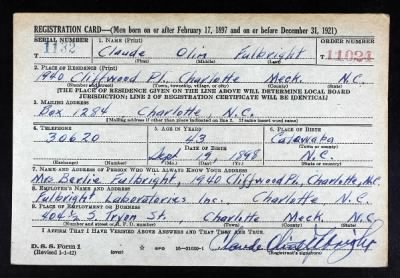 REGISTRATION CARD—(Men born on or after February 17, 1897 and on or before December 31, 1921)
SERIAL NUMBER 1. NAME (Print) ORDER NUMBER
T 1132 Claude Olin Fulbright T 11024
(First) (Middle) (Last)
2. PLACE OF RESIDENCE (Print)
1940 Cliffwood Pl. Charlotte Meck. N.C.
(Number and street) (Town, township, village, or city) (County) (State)
[THE PLACE OF RESIDENCE GIVEN ON THE LINE ABOVE WILL DETERMINE LOCAL BOARD
JURISDICTION; LINE 2 OF REGISTRATION CERTIFICATE WILL BE IDENTICAL]
3. MAILING ADDRESS
Box 1284, Charlotte, N.C.
[Mailing address if other than place indicated on line 2. If same insert word same]
4. TELEPHONE 5. AGE IN YEARS 6. PLACE OF BIRTH
30620 43 Catawba
DATE OF BIRTH (Town or county)
Sept 19 1898 N.C.
(Exchange) (Number) (Mo.) (Day) (Yr.) (State or country)
7. NAME AND ADDRESS OF PERSON WHO WILL ALWAYS KNOW YOUR ADDRESS
Mrs Bertie Fulbright, 1940 Cliffwood Pl., Charlotte, N.C.
8. EMPLOYER'S NAME AND ADDRESS
Fulbright Laboratories Inc. Charlotte N.C.
9. PLACE OF EMPLOYMENT OR BUSINESS
404½ S. Tryon St., Charlotte Meck. N.C.
(Number and street or R. F. D. number) (Town) (County) (State)
I AFFIRM THAT I HAVE VERIFIED ABOVE ANSWERS AND THAT THEY ARE TRUE.
D. S. S. Form 1
(Revised 1-1-42) (over) GPO 16—21630-1 Claude Olin Fulbright
(Registrant's signature)